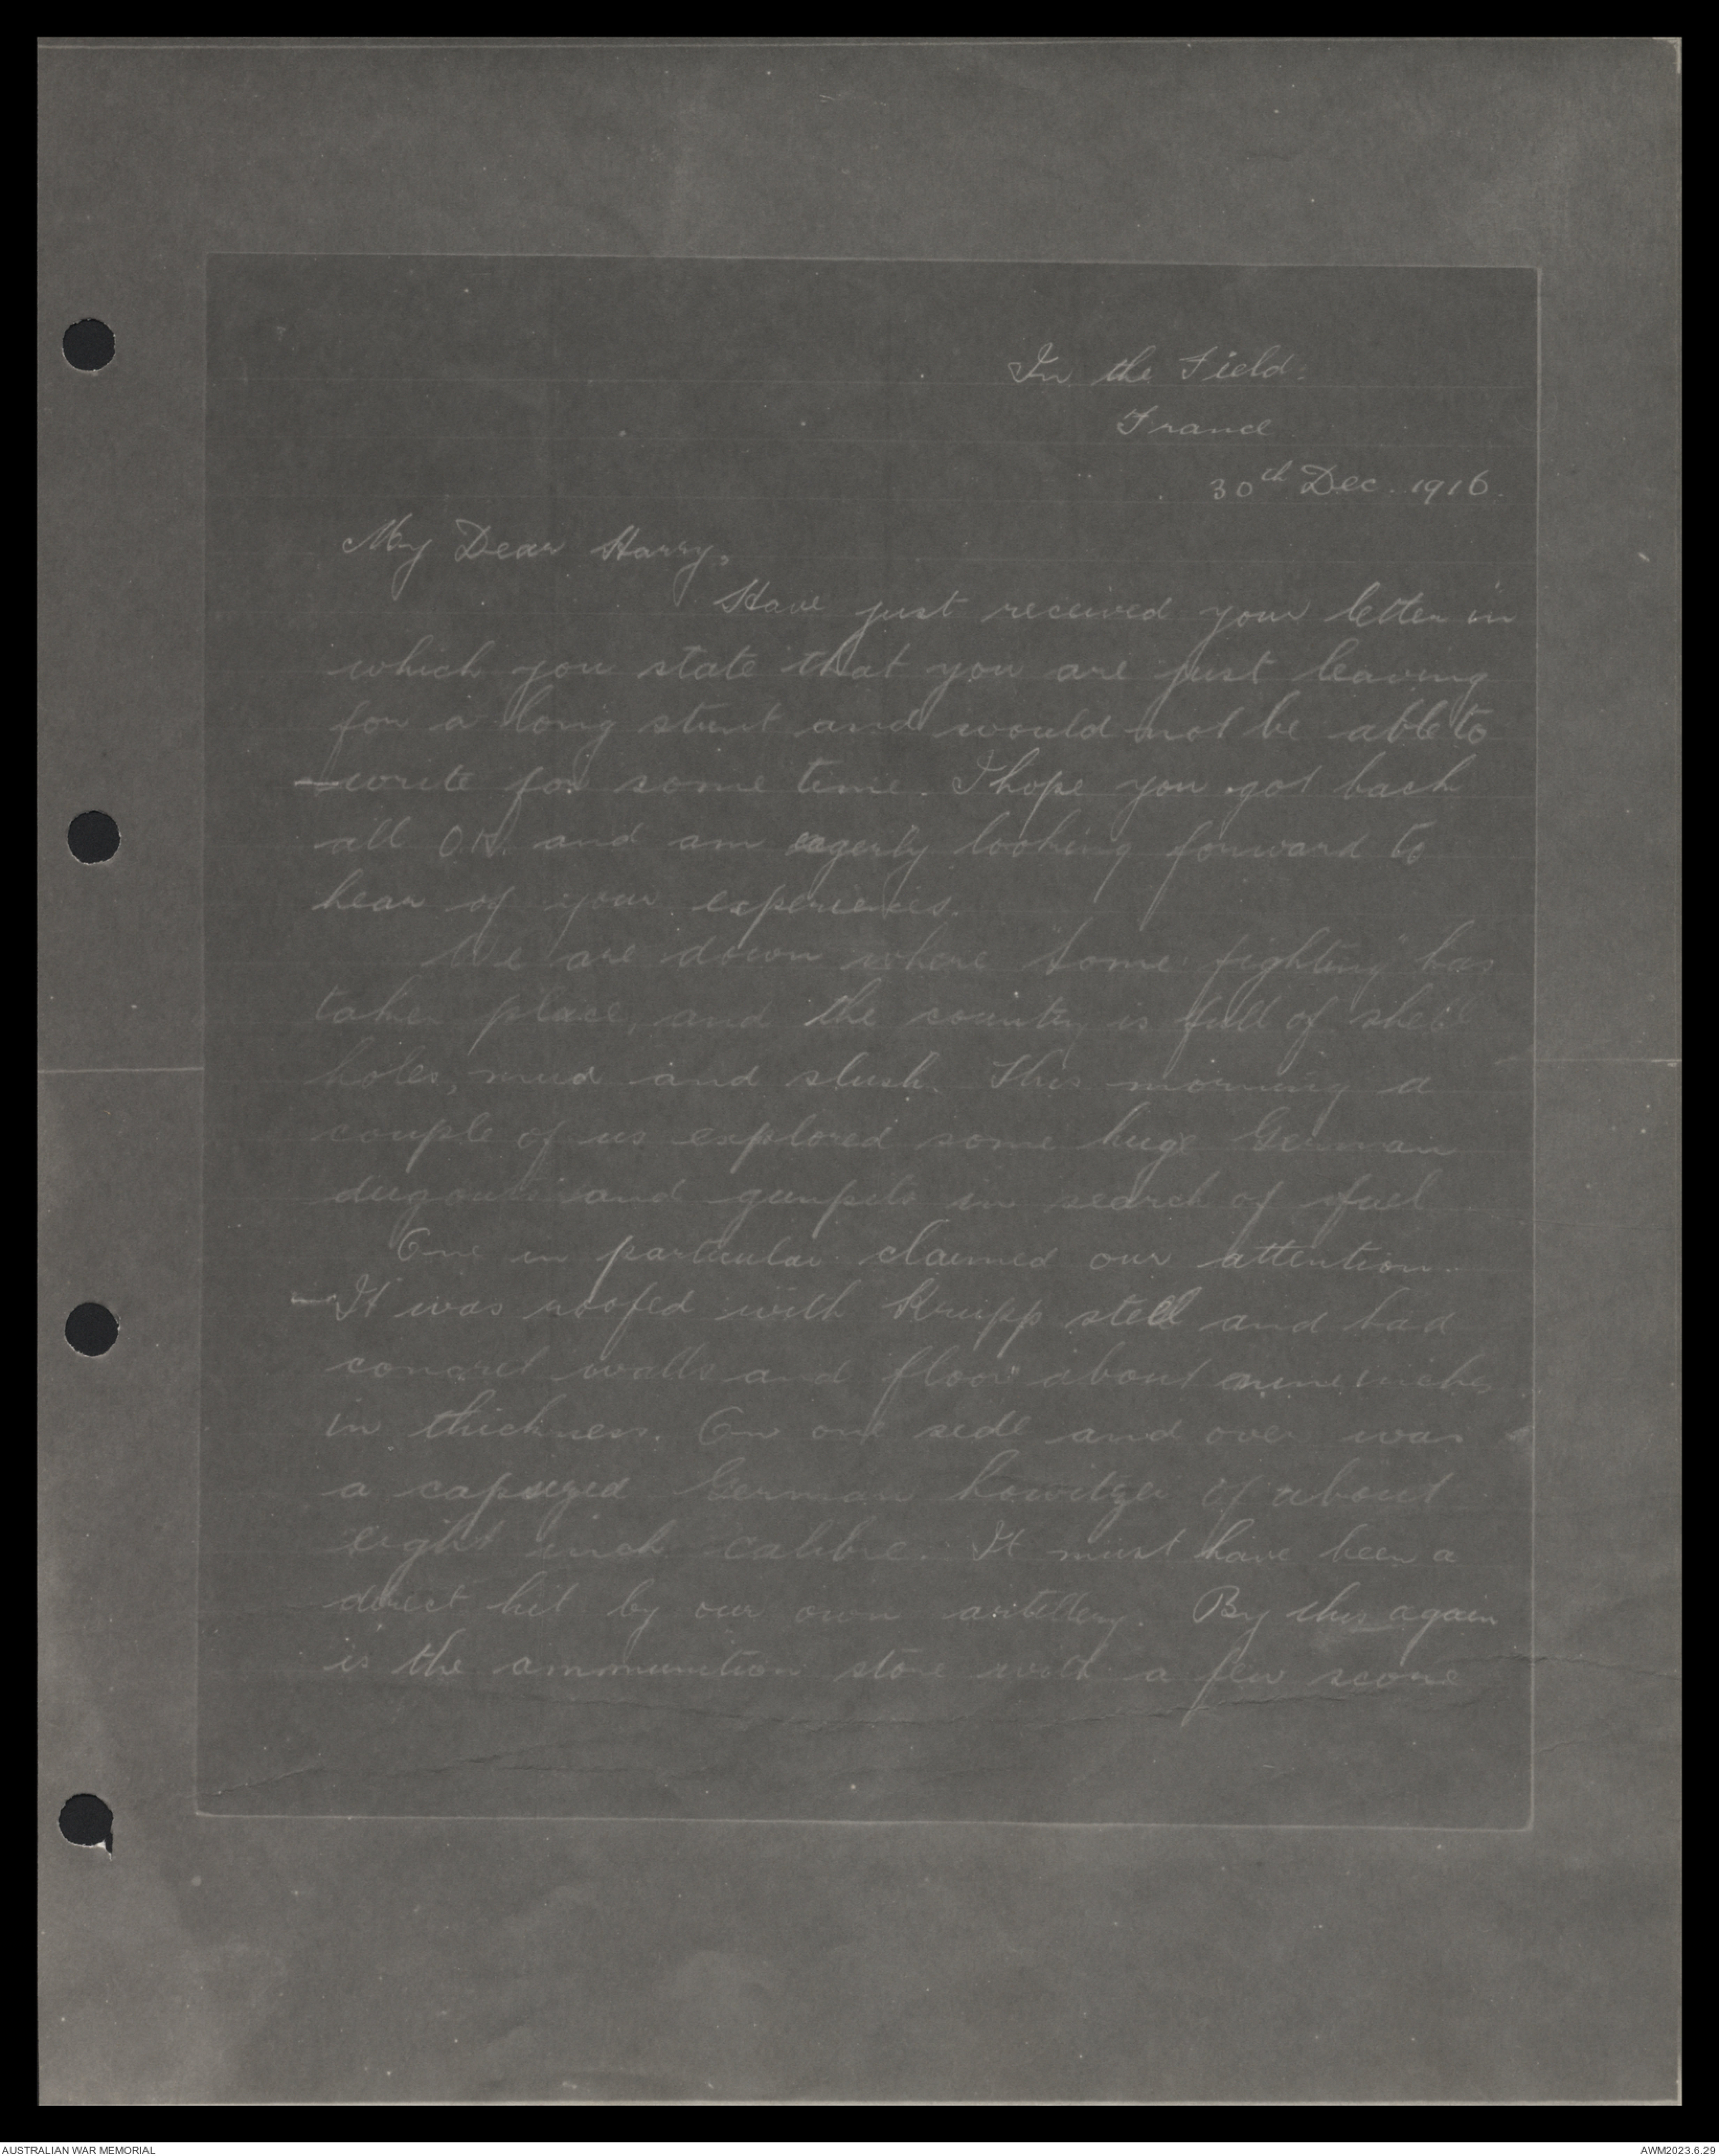 In the Field.
France
30th Dec. 1916.
My Dear Harry,
Have just received your letter in
which you state that you are just leaving
for a long stunt and would not be able to
write for some time. I hope you got back
all O.K. and am eagerly looking forward to
hear of your experiences.
We are down where "some fighting" has
taken place, and the country is full of shell
holes, mud and slush. This morning a
couple of us explored some huge German
dugouts and gunpits in search of fuel
One in particular claimed our attention.
It was roofed with Krupp steel and had
concret walls and floor about nine inches
in thickness. On one side and over was
a capsized German howitzer of about
eight inch calibre. It must have been a
direct hit by our own artillery. By this again
is the ammunition store with a few score
AUSTRALIAN WAR MEMORIAL
AWM2023.6.29